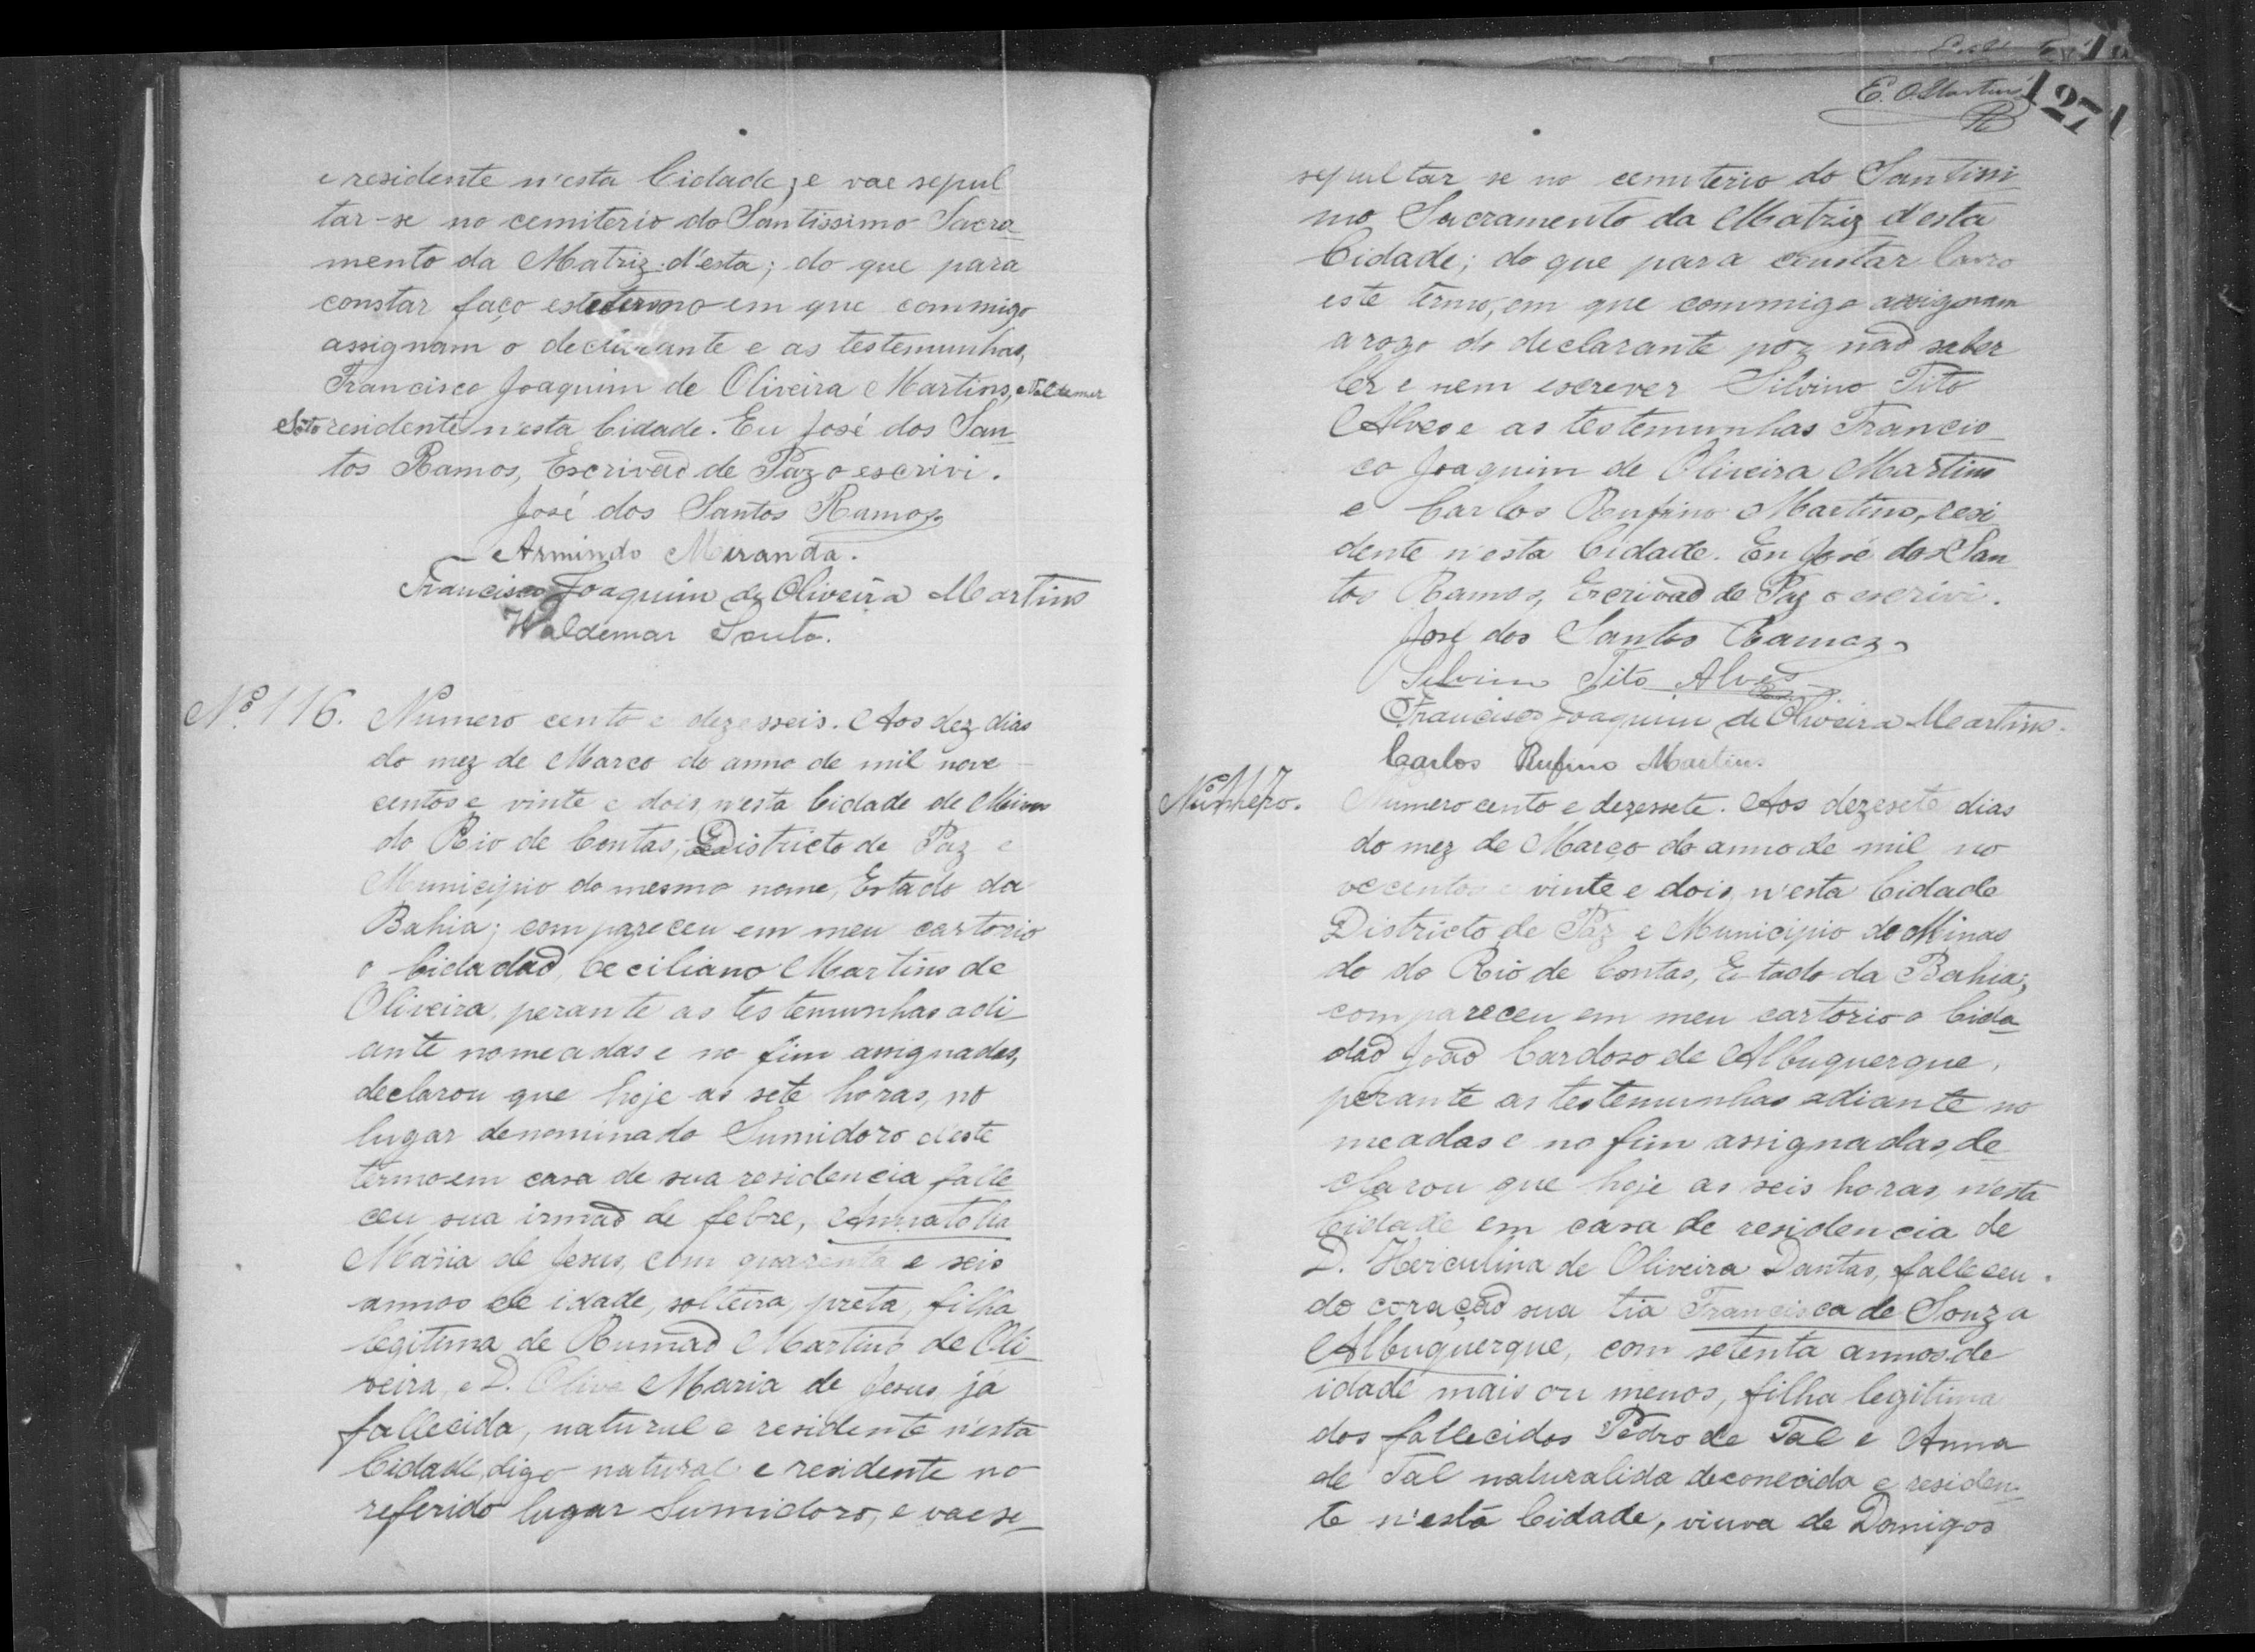 e residente n'esta Cidade; e vae sepul
tar-se no cemiterio do Santissimo Sacra
mento da Matriz d'esta; do que para
constar faço este termo em que commigo
assignam o declarante e as testemunhas,
Francisco Joaquim de Oliveira Martins, e Valdemar
Soto residente n'esta Cidade. Eu José dos San
tos Ramos, Escrivaõ de Paz o escrivi.
José dos Santos Ramos
Armindo Miranda.
Francisco Joaquim de Oliveira Martins
Waldemar Souto.
Nº 116. Numero cento e dezesseis. Aos dez dias
do mez de Março do anno de mil nove
centos e vinte e dois, n'esta Cidade de Minas
do Rio de Contas, Districto de Paz e
Municipio do mesmo nome, Estado da
Bahia; compareceu em meu cartorio
o Cidadaõ, Ceciliano Martins de
Oliveira, perante as testemunhas adi
ante nomeadas e no fim assignadas,
declarou que hoje as sete horas, no
lugar denominado Sumidoro d'este
termo em casa de sua residencia falle
ceu sua irmaõ de febre, Annatolia
Maria de Jesus, com quarenta e seis
annos de idade, solteira, preta, filha
legitima de Rumaõ Martins de Oli
veira, e D. Oliva Maria de Jesus já
fallecida, natural e residente n'esta
Cidade, digo natural e residente no
referido lugar Sumidoro, e vae se
E. O. Martins
127
sepultar se no cemiterio do Santissi
mo Sacramento da Matriz d'esta
Cidade; do que para constar lavro
este termo, em que commigo assignam
a rogo do declarante por naõ saber
ler e nem escrever Silvino Tito
Alves e as testemunhas Francis
co Joaquim de Oliveira Martins
e Carlos Rufino Martins, resi
dente n'esta Cidade. Eu José dos San
tos Ramos, Escrivaõ de Paz o escrivi.
José dos Santos Ramos
Silvino Tito Alves
Francisco Joaquim de Oliveira Martins.
Carlos Rufino Martins.
Nº 117. Numero cento e dezessete. Aos dezesete dias
do mez de Março do anno de mil no
vecentos e vinte e dois, n'esta Cidade
Districto de Paz e Municipio de Minas
do do Rio de Contas, Estado da Bahia;
compareceu em meu cartorio o Cida
daõ Joaõ Cardoso de Albuquerque,
perante as testemunhas adiante no
meadas e no fim assignadas, de
clarou que hoje as seis horas, n'esta
Cidade em casa de residencia de
D. Herculina de Oliveira Dantas, falleceu
do coraçaõ sua tia Francisca de Souza
Albuquerque, com setenta annos de
idade mais ou menos, filha legitima
dos fallecidos Pedro de Tal e Anna
de Tal naturalida deconecida e residen
te n'esta Cidade, viuva de Domigos